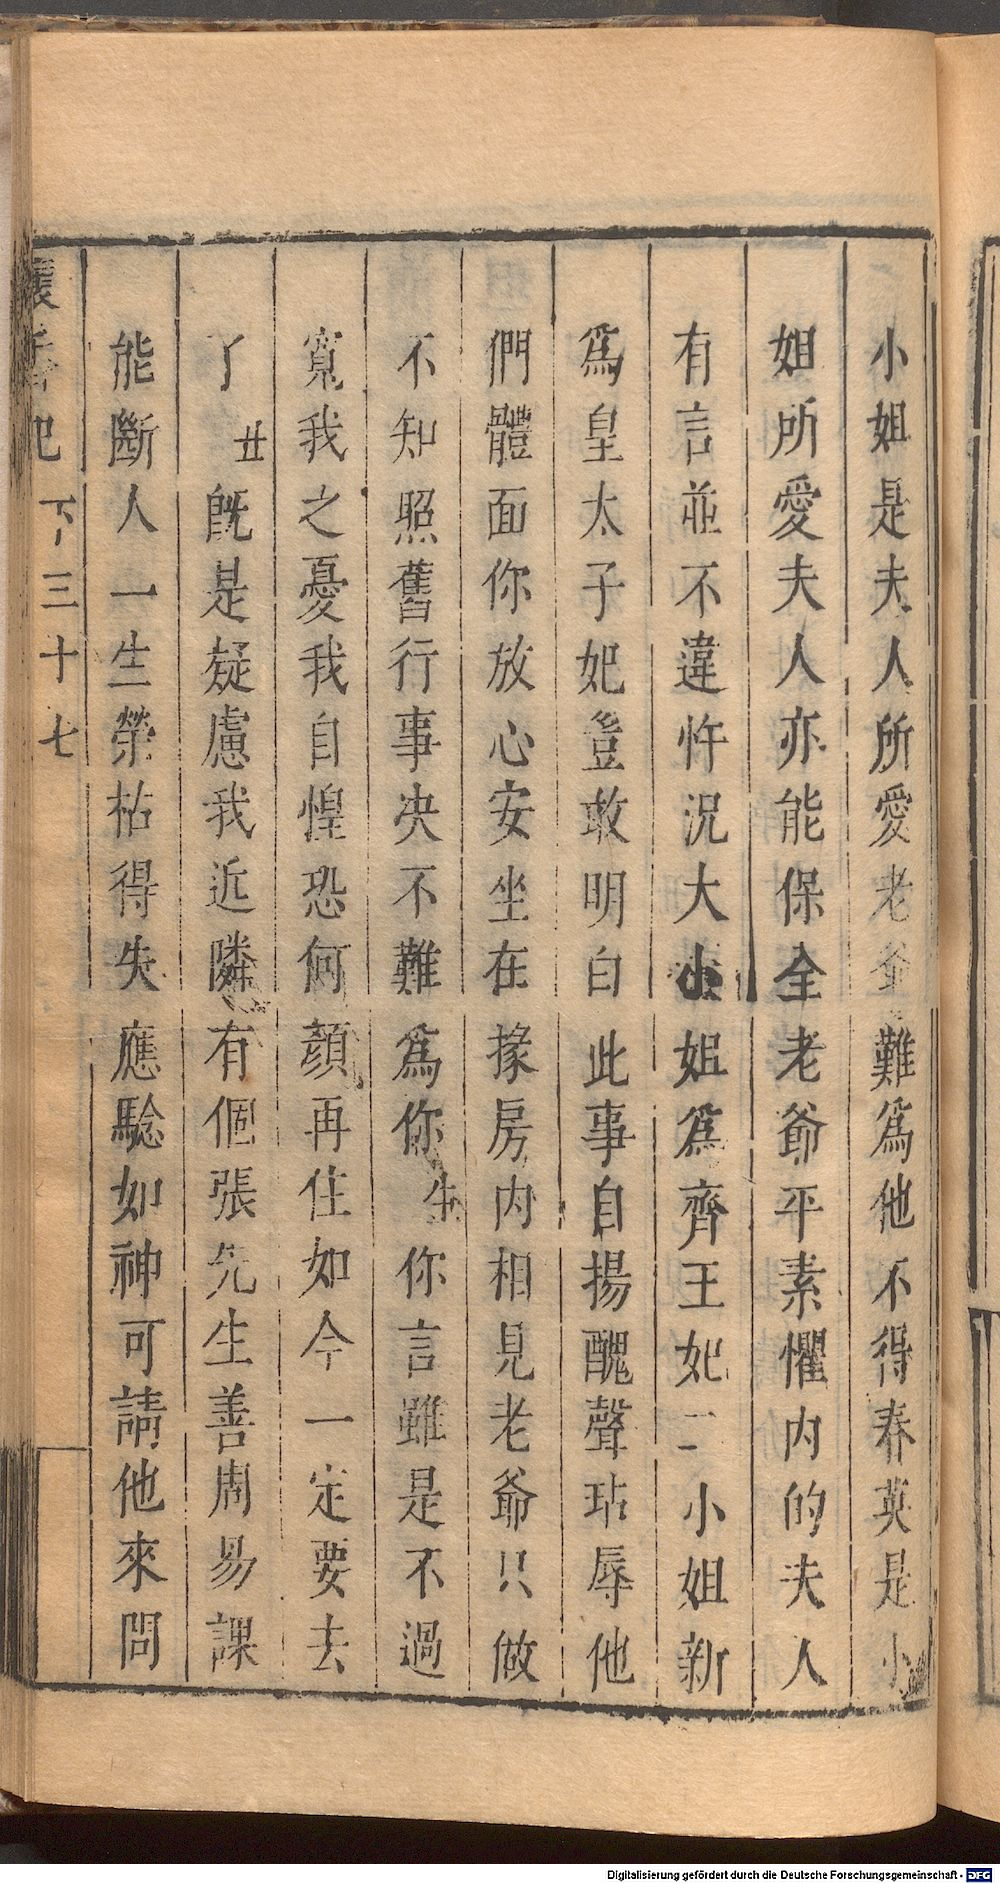 小姐是夫人所愛老爺難爲他不得春英是小
姐所愛夫人亦能保全老爺平素懼內的夫人
有言並不違忤況大小姐爲齊王妃二小姐新
爲皇太子妃豈敢明白此事自揚醜聲玷辱他
們體面你放心安坐在掾房内相見老爺只做
不知照舊行事决不難爲你生你言雖是不過
寬我之憂我自惶恐何顔再住如今一定要去
了丑旣是疑慮我近隣有個張先生善周易課
能斷人一生榮枯得失應騐如神可請他來問
懷香記 下 三十七
Digitalisierung gefördert durch die Deutsche Forschungsgemeinschaft - DFG